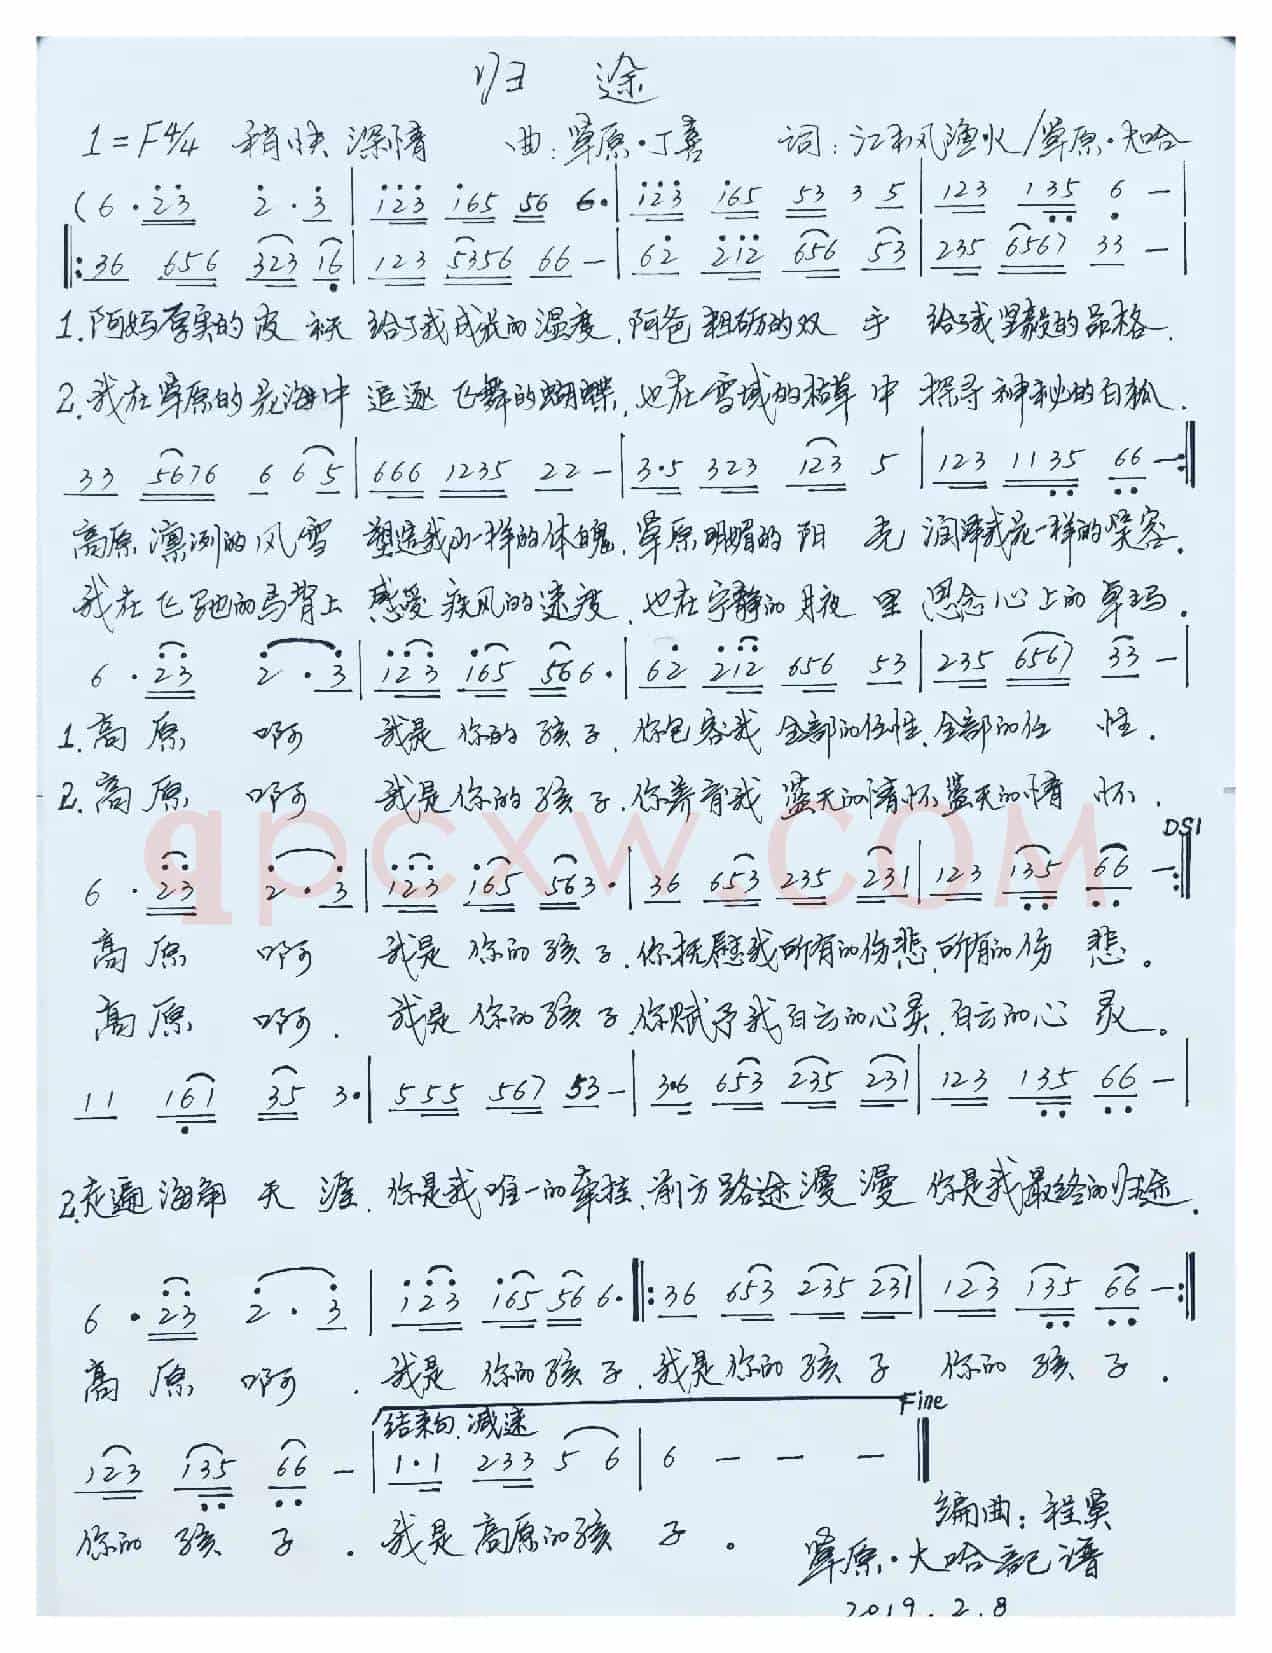 归 途
1=F4/4 稍快 深情 曲:草原·丁喜 词:江和风渔火/草原·大哈
(6·23 2·3 | 123 165 56 6· | 123 165 53 3 5 | 123 135 6 - |
‖: 36 656 323 16 | 123 5356 66 - | 62 212 656 53 | 235 6567 33 - |
1.阿妈厚实的皮袄 给了我成长的温度,阿爸粗砺的双手 给了我坚毅的品格.
2.我在草原的花海中 追逐飞舞的蝴蝶,也在雪域的枯草中 探寻神秘的白狐.
33 5676 6 6 5 | 666 1235 22 - | 3·5 323 123 5 | 123 1135 66 - :‖
高原凛冽的风雪 塑造我山一样的体魄,草原明媚的阳光 润泽我花一样的笑容.
我在飞驰的马背上 感受疾风的速度,也在宁静的月夜里 思念心上的卓玛.
6·23 2·3 | 123 165 56 6· | 62 212 656 53 | 235 6567 33 - |
1.高原 啊 我是你的孩子,你包容我全部的任性,全部的任性.
2.高原 啊 我是你的孩子,你养育我蓝天的情怀,蓝天的情怀.
qpcxw.com
DS1
6·23 2·3 | 123 165 563· | 36 653 235 231 | 123 135 66 - :‖
高原 啊 我是你的孩子,你抚慰我所有的伤悲,所有的伤悲。
高原 啊. 我是你的孩子,你赋予我白云的心灵,白云的心灵。
11 161 35 3· | 555 567 53 - | 3·6 653 235 231 | 123 135 66 - |
2.走遍海角天涯,你是我唯一的牵挂,前方路途漫漫 你是我最终的归途.
6·23 2·3 | 123 165 56 6· ‖: 36 653 235 231 | 123 135 66 - :‖
高原 啊. 我是你的孩子,我是你的孩子 你的孩子.
结束句.减速 Fine
123 135 66 - | 1·1 233 5 6 | 6 - - - ‖
你的孩子. 我是高原的孩子。
编曲:程昊
草原·大哈記谱
2019.2.8